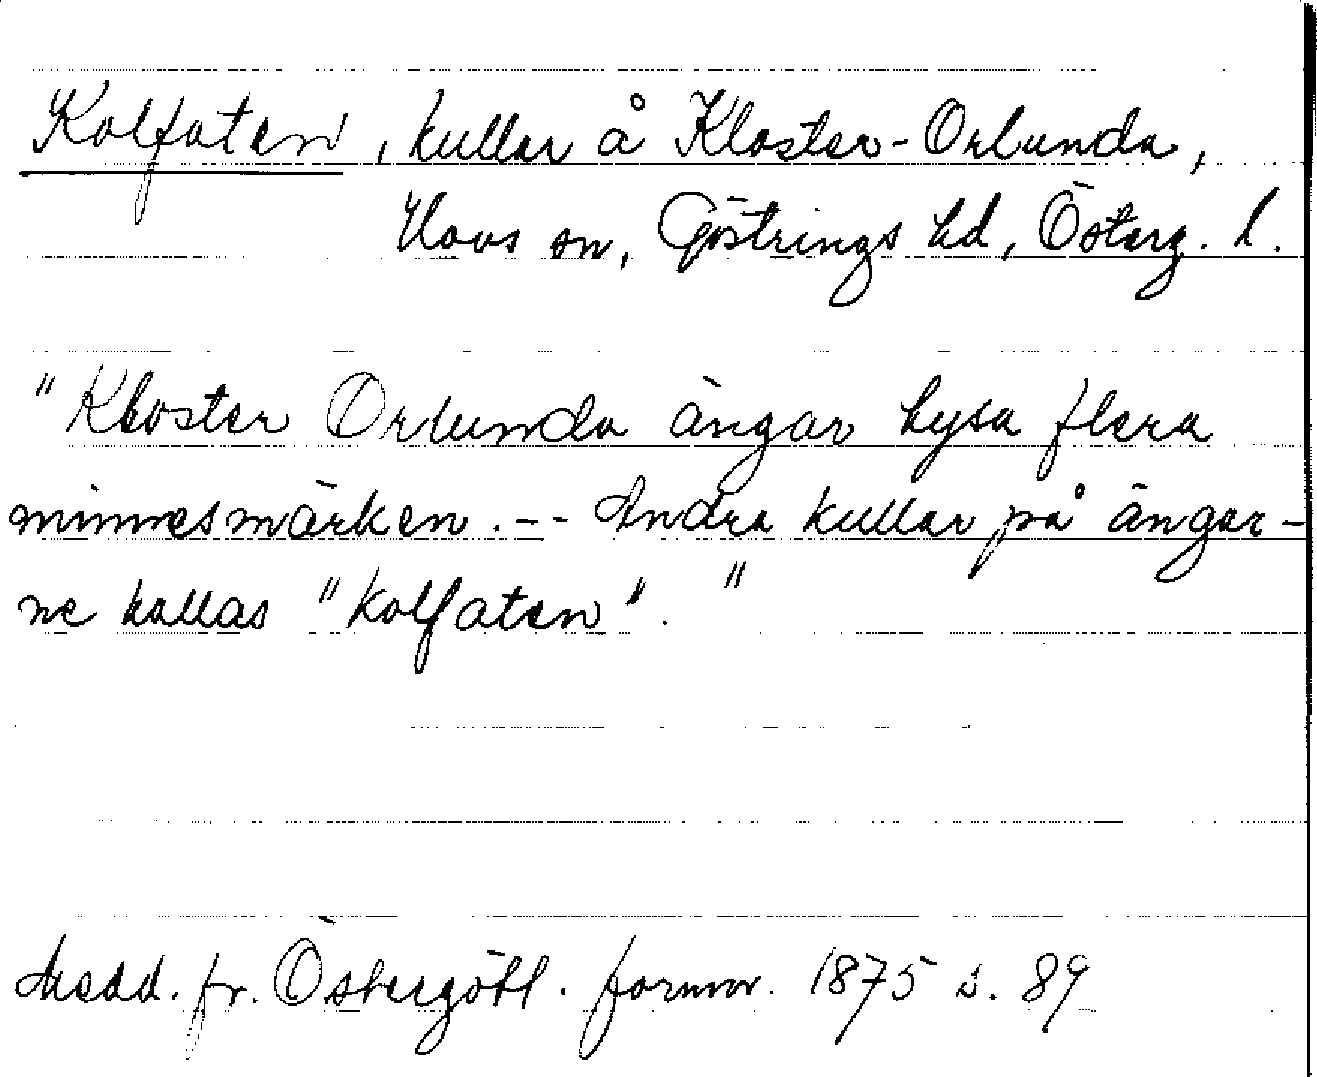 Kolfaten, kullar å Kloster-Orlunda,
Hovs sn, Göstrings hd, Österg. l.
"Kloster Orlunda ängar hysa flera
minnesmärken. -- Andra kullar på ängar-
ne kallas "kolfaten"."
Medd. fr. Östergötl. fornm. 1875 s. 89